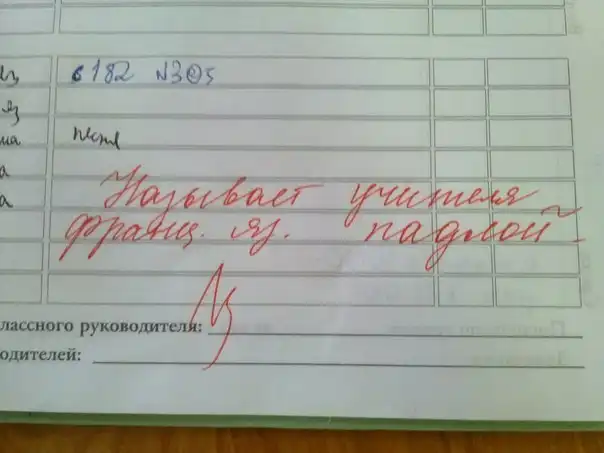 яз с 182 N305
яз
ма песня
а
а
Называет учителя
франц. яз. падлой
лассного руководителя:
одителей: